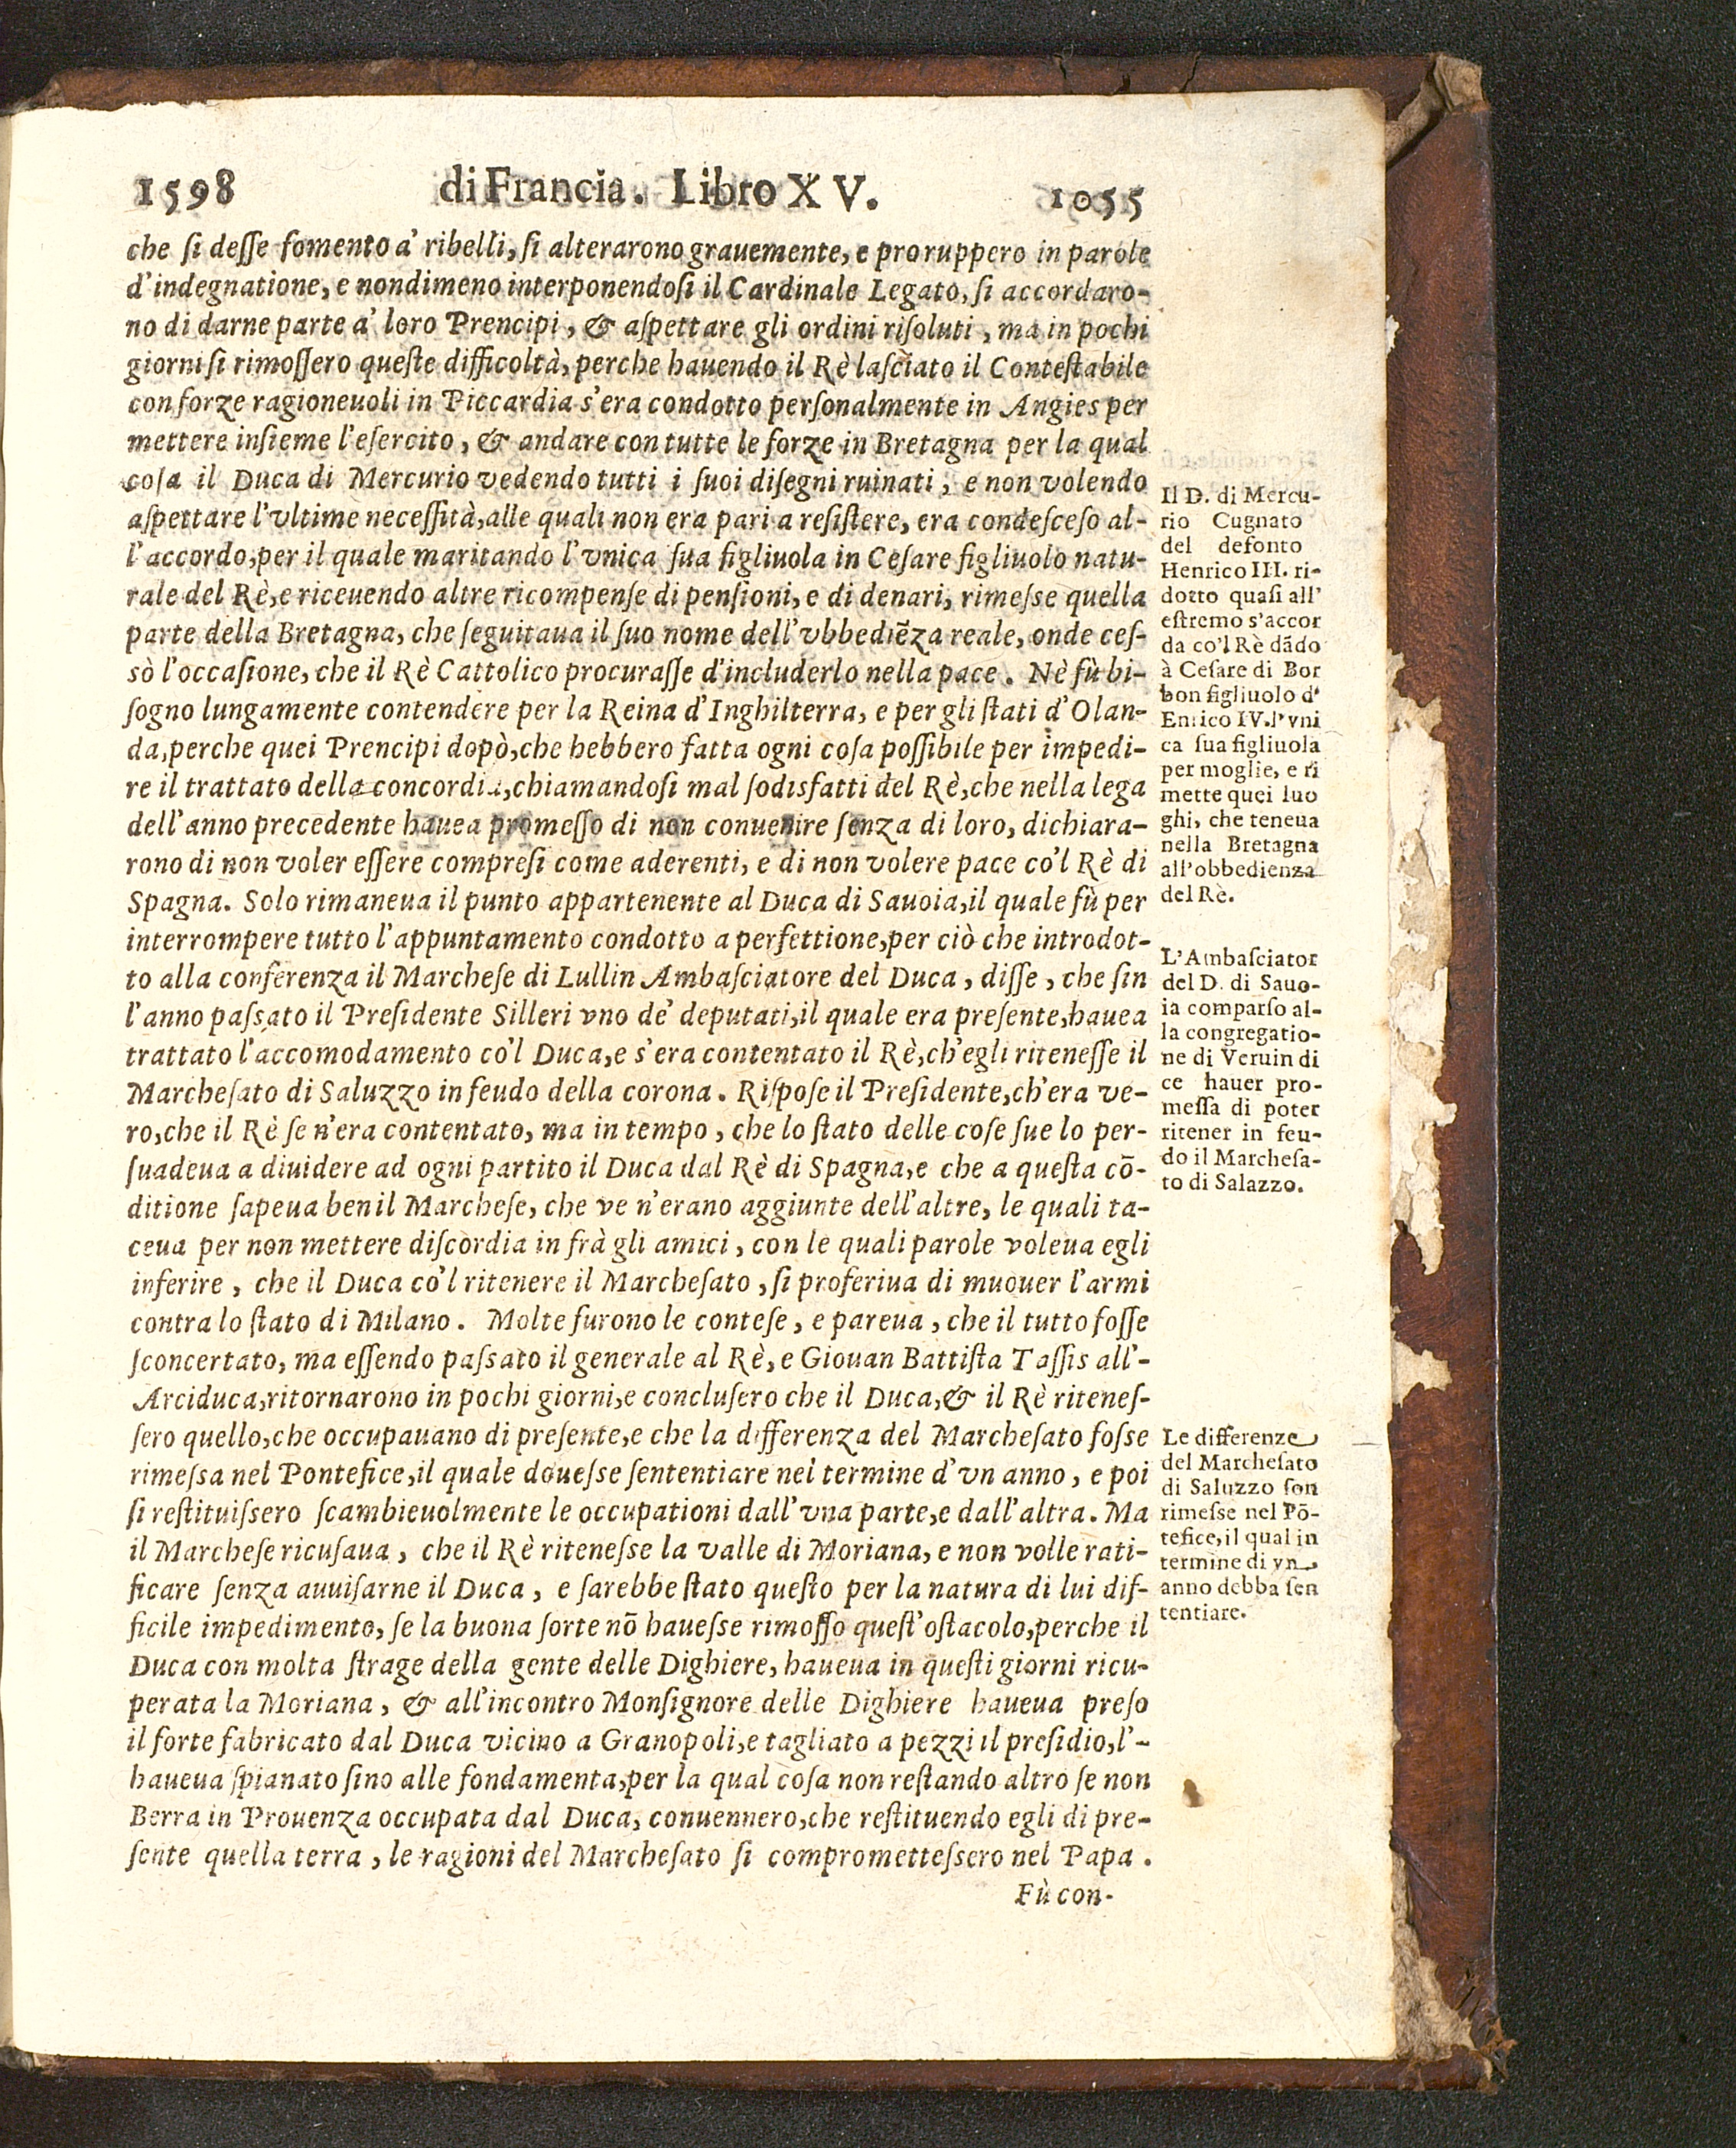 1598 di Francia. Libro XV. 1055
che ſi deſſe fomento a' ribelli, ſi alterarono grauemente, e proruppero in parole
d'indegnatione, e nondimeno interponendoſi il Cardinale Legato, ſi accordaro-
no di darne parte a' loro Prencipi, & aſpettare gli ordini riſoluti, ma in pochi
giorni ſi rimoſſero queſte difficoltà, perche hauendo il Rè laſciato il Conteſtabile
con forze ragioneuoli in Piccardia s'era condotto perſonalmente in Angies per
mettere inſieme l'eſercito, & andare con tutte le forze in Bretagna per la qual
coſa il Duca di Mercurio vedendo tutti i ſuoi diſegni ruinati, e non volendo
aſpettare l'vltime neceſſità, alle quali non era pari a reſiſtere, era condeſceſo al-
l'accordo, per il quale maritando l'vnica ſua figliuola in Ceſare figliuolo natu-
rale del Rè, e riceuendo altre ricompenſe di penſioni, e di denari, rimeſse quella
parte della Bretagna, che ſeguitaua il ſuo nome dell'vbbediēza reale, onde ceſ-
sò l'occaſione, che il Rè Cattolico procuraſſe d'includerlo nella pace. Nè fù bi-
ſogno lungamente contendere per la Reina d'Inghilterra, e per gli ſtati d'Olan-
da, perche quei Prencipi dopò, che hebbero fatta ogni coſa poſſibile per impedi-
re il trattato della concordia, chiamandoſi mal ſodisfatti del Rè, che nella lega
dell'anno precedente hauea promeſſo di non conuenire ſenza di loro, dichiara-
rono di non voler eſſere compreſi come aderenti, e di non volere pace co'l Rè di
Spagna. Solo rimaneua il punto appartenente al Duca di Sauoia, il quale fù per
interrompere tutto l'appuntamento condotto a perfettione, per ciò che introdot-
to alla conferenza il Marcheſe di Lullin Ambaſciatore del Duca, diſſe, che ſin
l'anno paſsato il Preſidente Silleri vno de' deputati, il quale era preſente, hauea
trattato l'accomodamento co'l Duca, e s'era contentato il Rè, ch'egli riteneſſe il
Marcheſato di Saluzzo in feudo della corona. Riſpoſe il Preſidente, ch'era ve-
ro, che il Rè ſe n'era contentato, ma in tempo, che lo ſtato delle coſe ſue lo per-
ſuadeua a diuidere ad ogni partito il Duca dal Rè di Spagna, e che a queſta cō-
ditione ſapeua ben il Marcheſe, che ve n'erano aggiunte dell'altre, le quali ta-
ceua per non mettere diſcordia in frà gli amici, con le quali parole voleua egli
inferire, che il Duca co'l ritenere il Marcheſato, ſi proferiua di muouer l'armi
contra lo ſtato di Milano. Molte furono le conteſe, e pareua, che il tutto foſſe
ſconcertato, ma eſſendo paſsato il generale al Rè, e Giouan Battiſta Taſſis all'-
Arciduca, ritornarono in pochi giorni, e concluſero che il Duca, & il Rè riteneſ-
ſero quello, che occupauano di preſente, e che la differenza del Marcheſato foſse
rimeſsa nel Pontefice, il quale doueſse ſententiare nel termine d'vn anno, e poi
ſi reſtituiſsero ſcambieuolmente le occupationi dall'vna parte, e dall'altra. Ma
il Marcheſe ricuſaua, che il Rè riteneſse la valle di Moriana, e non volle rati-
ficare ſenza auuiſarne il Duca, e ſarebbe ſtato queſto per la natura di lui dif-
ficile impedimento, ſe la buona ſorte nō haueſse rimoſſo queſt'oſtacolo, perche il
Duca con molta ſtrage della gente delle Dighiere, haueua in queſti giorni ricu-
perata la Moriana, & all'incontro Monſignore delle Dighiere haueua preſo
il forte fabricato dal Duca vicino a Granopoli, e tagliato a pezzi il preſidio, l'-
haueua ſpianato ſino alle fondamenta, per la qual coſa non reſtando altro ſe non
Berra in Prouenza occupata dal Duca, conuennero, che reſtituendo egli di pre-
ſente quella terra, le ragioni del Marcheſato ſi compromettеſsero nel Papa.
Fù con-
Il D. di Mercu-
rio Cugnato
del defonto
Henrico III. ri-
dotto quaſi all'
eſtremo s'accor
da co'l Rè dādo
à Ceſare di Bor
bon figliuolo d'
Enrico IV. l'vni
ca ſua figliuola
per moglie, e ri
mette quei luo
ghi, che teneua
nella Bretagna
all'obbedienza
del Rè.
L'Ambaſciator
del D. di Sauo-
ia comparſo al-
la congregatio-
ne di Veruin di
ce hauer pro-
meſſa di poter
ritener in feu-
do il Marcheſa-
to di Salazzo.
Le differenze
del Marcheſato
di Saluzzo ſon
rimeſse nel Pō-
tefice, il qual in
termine di vn
anno debba ſen
tentiare.